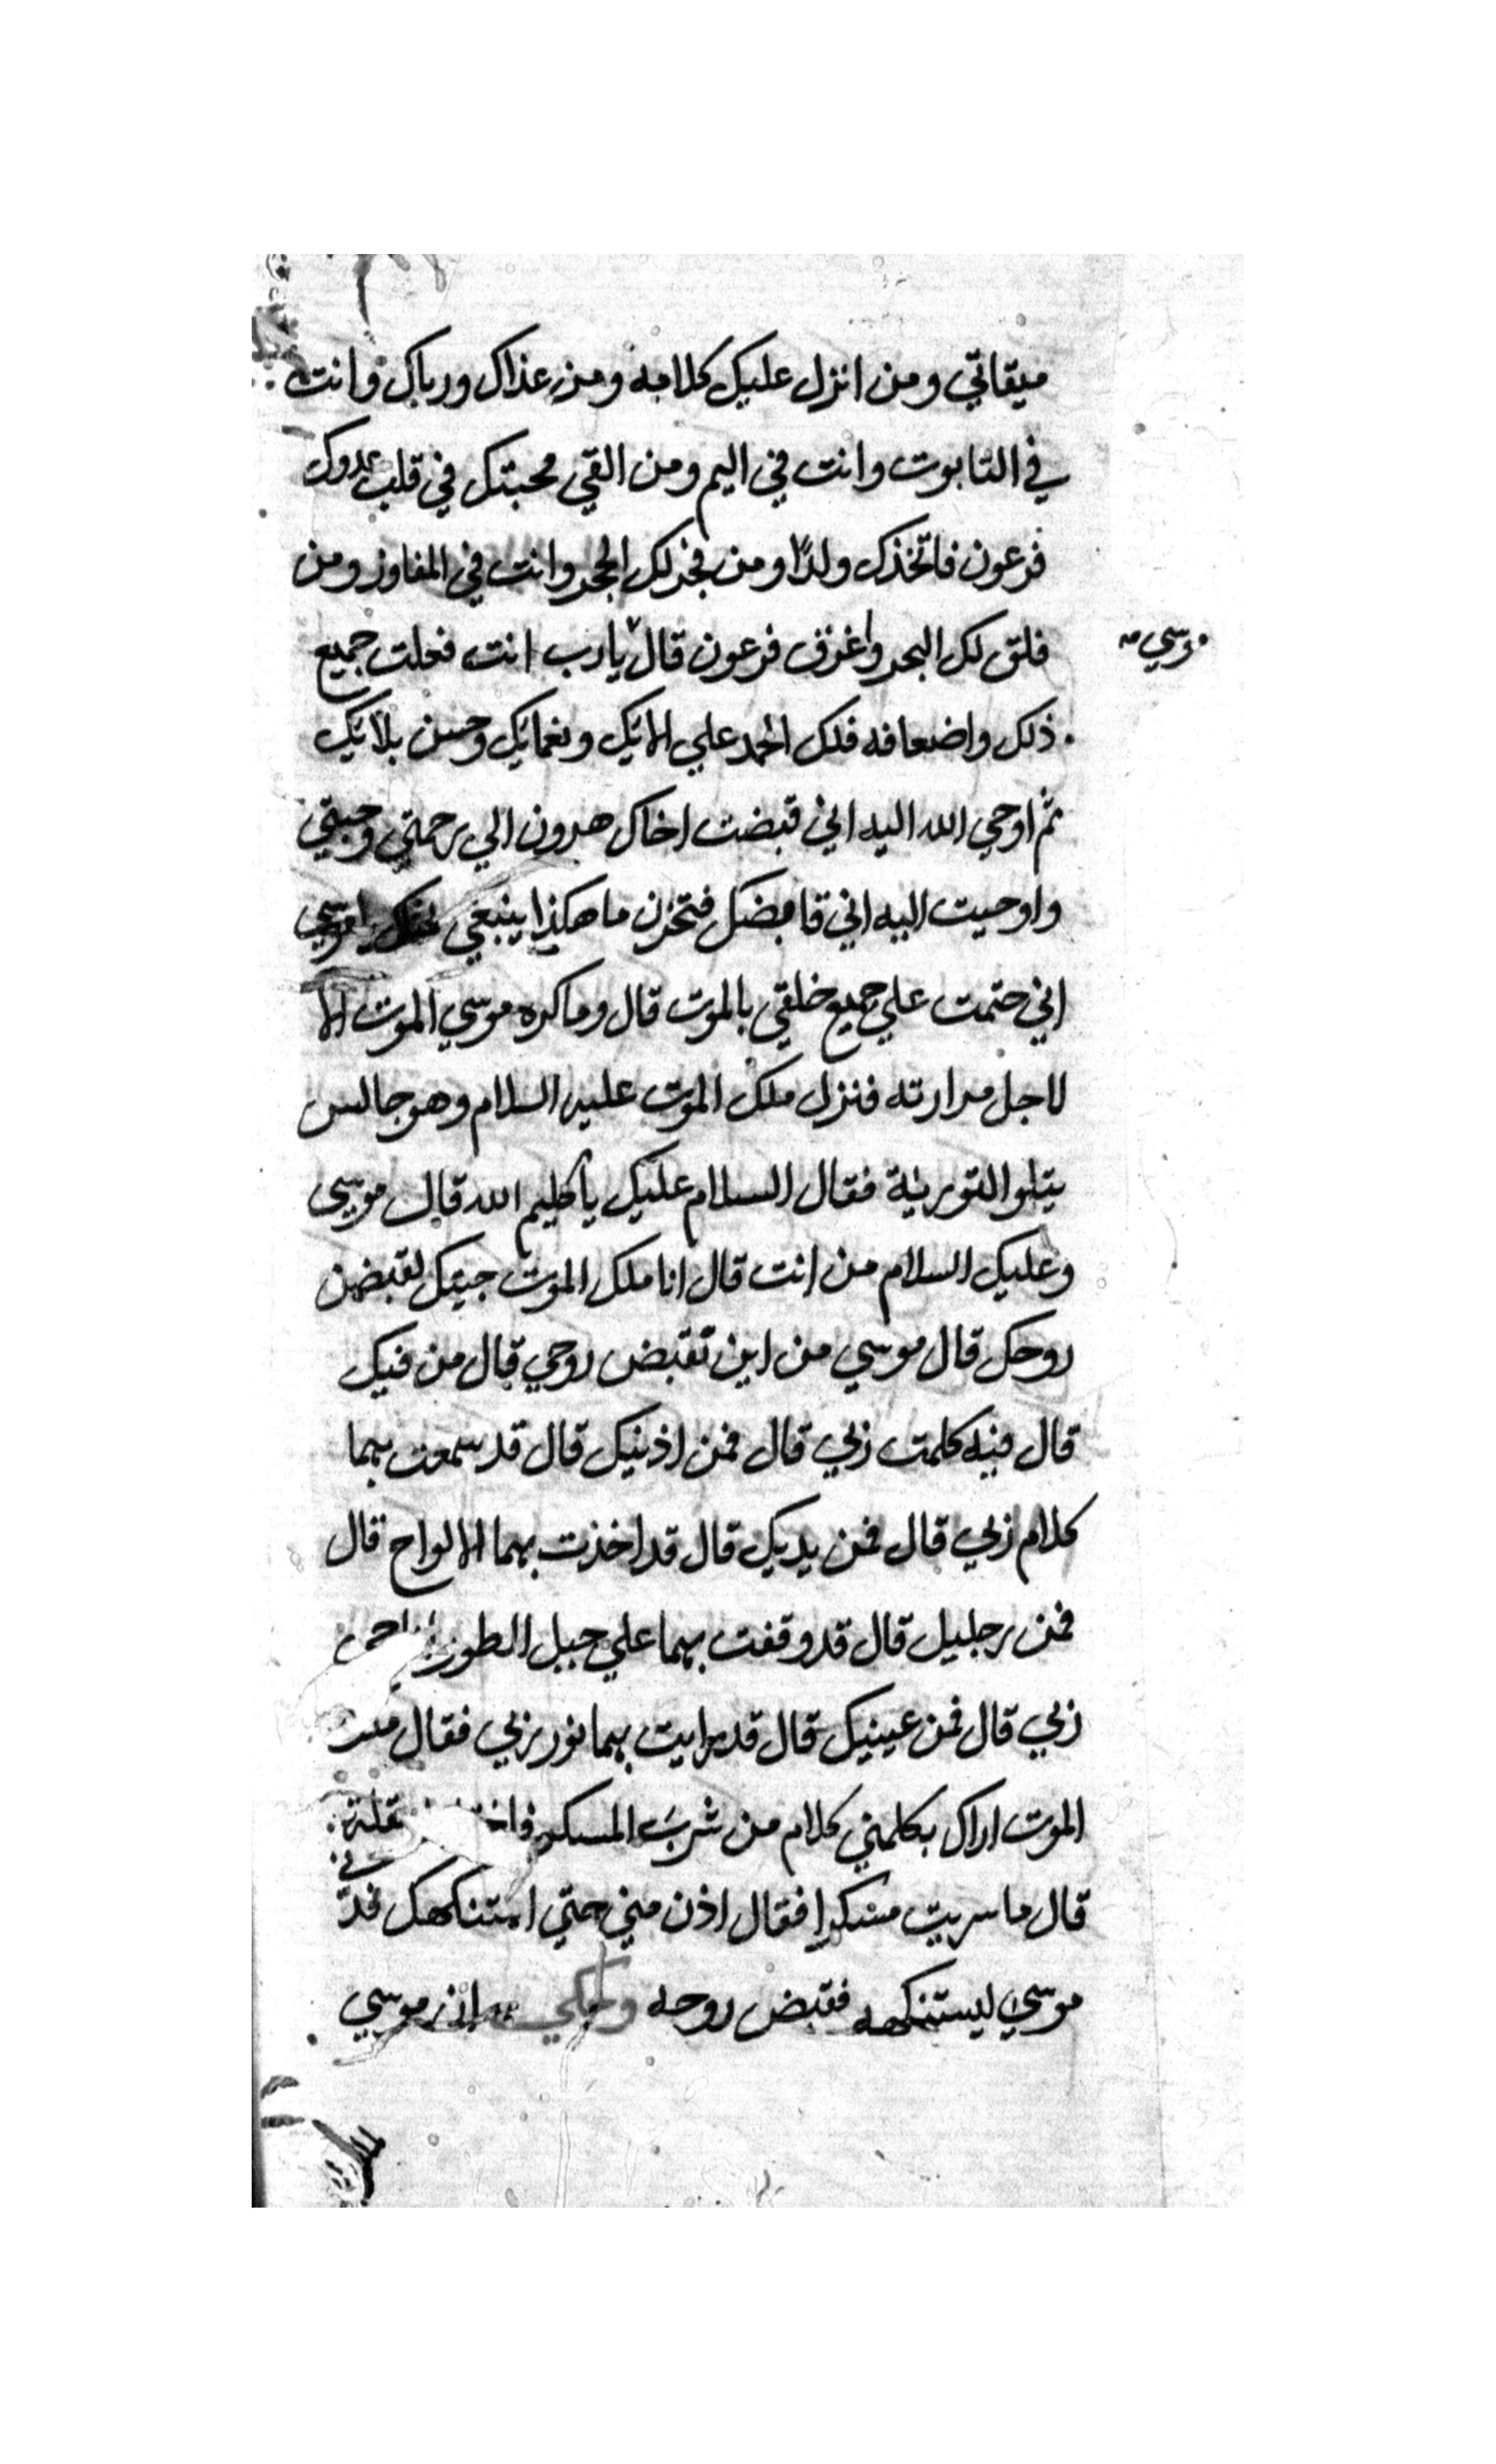 ميقاتي ومن انزل عليك كلامه ومن غذاك ورباك وانت
في التابوت وانت في اليم ومن القي محبتك في قلب عدوك
فرعون فاتخذك ولدًا ومن فجر لك الحجر وانت في المفاوز ومن
فلق لك البحر واغرق فرعون قال يارب انت فعلت جميع
موسي صح
ذلك واضعافه فلك الحمد علي الائك ونعمائك وحسن بلائك
ثم اوحي الله اليه اني قبضت اخاك هرون الي رحمتي وجنتي
واوحيت اليه اني قابضك فتحزن ما هكذا ينبغي يا موسي
اني حتمت علي جميع خلقي بالموت قال وما كره موسي الموت الا
لاجل مرارته فنزل ملك الموت عليه السلام وهو جالس
يتلو التورية فقال السلام عليك يا كليم الله قال موسي
وعليك السلام من انت قال انا ملك الموت جيتك لقبض
روحك قال موسي من اين تقبض روحي قال من فيك
قال فيه كلمت ربي قال فمن اذنيك قال قد سمعت بهما
كلام ربي قال فمن يديك قال قد اخذت بهما الالواح قال
فمن رجليك قال قد وقفت بهما علي جبل الطور
ربي قال فمن عينيك قال قد رايت بهما نور ربي فقال ملك
الموت اراك بكلمني كلام من شرب المسكر عقله
قال ما سربت مسكرا فقال اذن مني حتي استنكهك فدني
موسي ليستنكهه فقبض روحه وحكي ان موسي